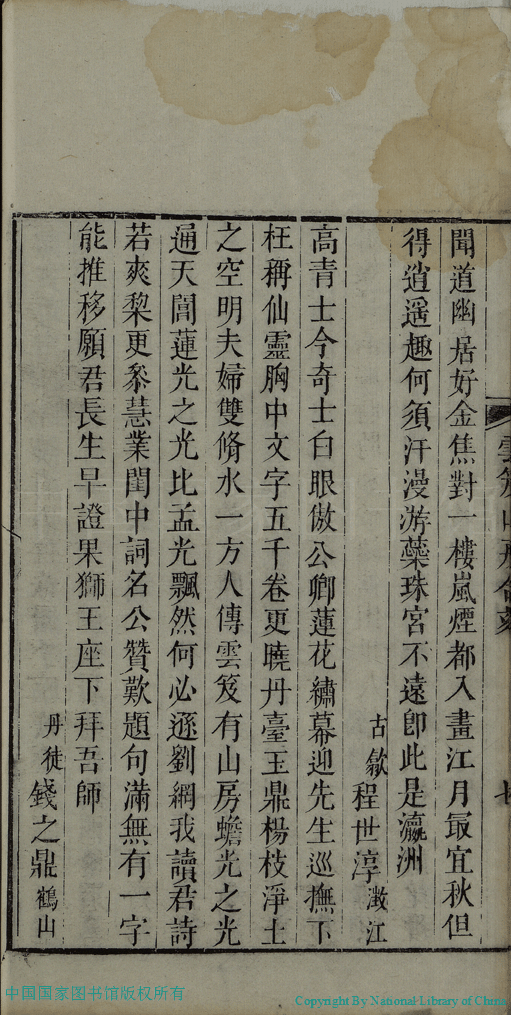 聞道幽居好金焦對一樓嵐煙都入畫江月最宜秋但
得逍遥趣何須汗漫游蘂珠宮不遠即此是瀛洲
古歙程世淳澂江
高青士今奇士白眼傲公卿蓮花繡幕迎先生巡撫下
枉稱仙靈胸中文字五千卷更曉丹臺玉鼎楊枝淨土
之空明夫婦雙脩水一方人傳雲笈有山房蟾光之光
通天閶蓮光之光比孟光飄然何必遜劉綱我讀君詩
若爽棃更叅慧業閨中詞名公贊歎題句滿無有一字
能推移願君長生早證果獅王座下拜吾師
丹徒錢之鼎鶴山
中国国家图书馆版权所有
Copyright By National Library of China